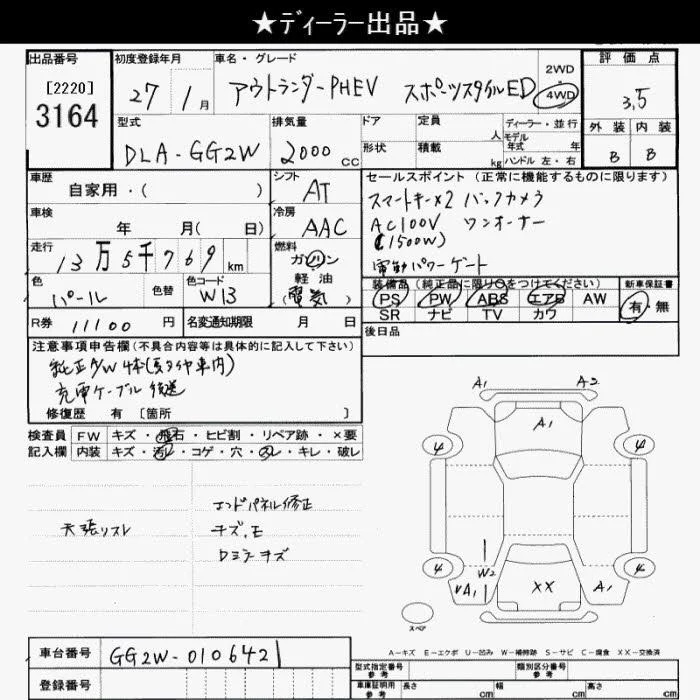 ★ディーラー出品★
出品番号 初度登録年月 車名・グレード 評価点
[2220]
3164
27 1月 アウトランダーPHEV スポーツスタイルED 2WD 4WD 3.5
型式 排気量 ドア 定員 人 ディーラー・並行 外装 内装
モデル年式 年
DLA-GG2W 2000cc 形状 積載 kg ハンドル 左・右 B B
車歴 シフト セールスポイント (正常に機能するものに限ります)
自家用・( ) AT スマートキー×2 バックカメラ
車検 冷房 AC100V ワンオーナー
年 月( 日) AAC (1500W)
走行 燃料 電動パワーゲート
13万5千769km ガソリン
軽油
(電気)
色 色替 色コード 装備品 (純正品に限り○をつけてください) 新車保証書
パール W13 PS PW ABS エアB AW 有・無
SR ナビ TV カワ
R券 11100円 名変通知期限 月 日 後日品
注意事項申告欄(不具合内容等は具体的に記入して下さい)
純正A/W 4本(夏タイヤ車内)
充電ケーブル 後送
修復歴 有 [箇所 ]
検査員 FW キズ・飛石・ヒビ割・リペア跡・×要
記入欄 内装 キズ・汚レ・コゲ・穴・スレ・キレ・破レ
エンドパネル修正
天張リスレ
A1 A2
A1
4 4
4 4
W2
A1 XX A1
スペア
A-キズ E-エクボ U-凹み W-補修跡 S-サビ C-腐食 XX-交換済
車台番号 GG2W-0106421
登録番号
型式指定番号 参考 類別区分番号 参考
車庫証明用 参考 長さ cm 幅 cm 高さ cm